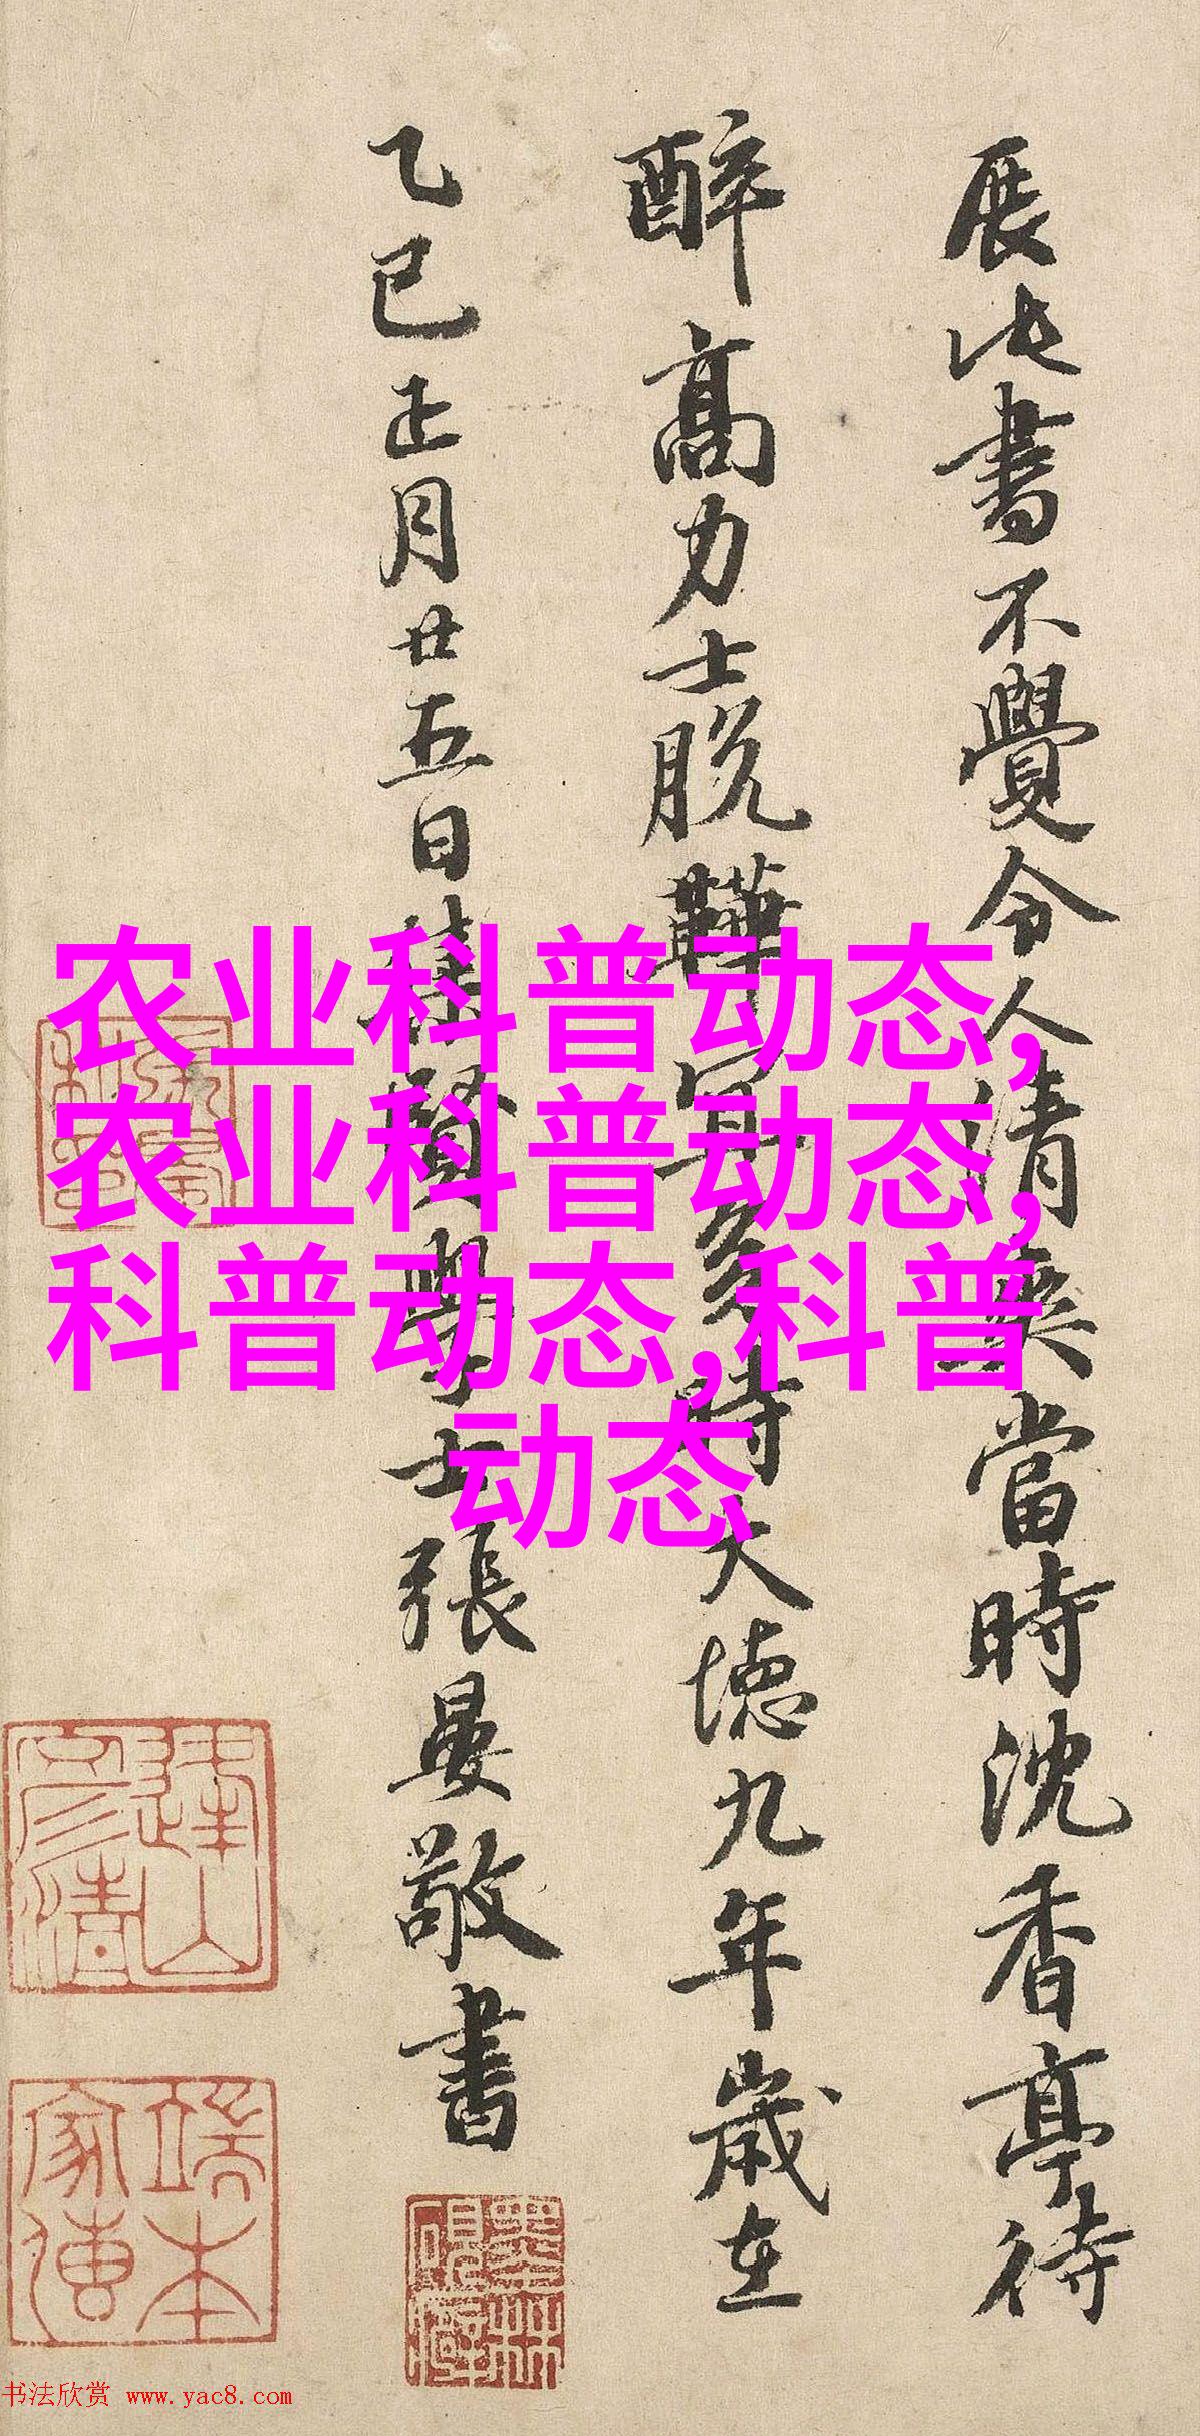 展此書不覺令人清爽當時沈香亭待
醉高力士脱鞾宜多時大德九年歲在
乙巳正月廿五日集賢學士張晏敬書
农业科普动态,
农业科普动态,
科普动态,科普
动态
书法欣赏 www.yac8.com